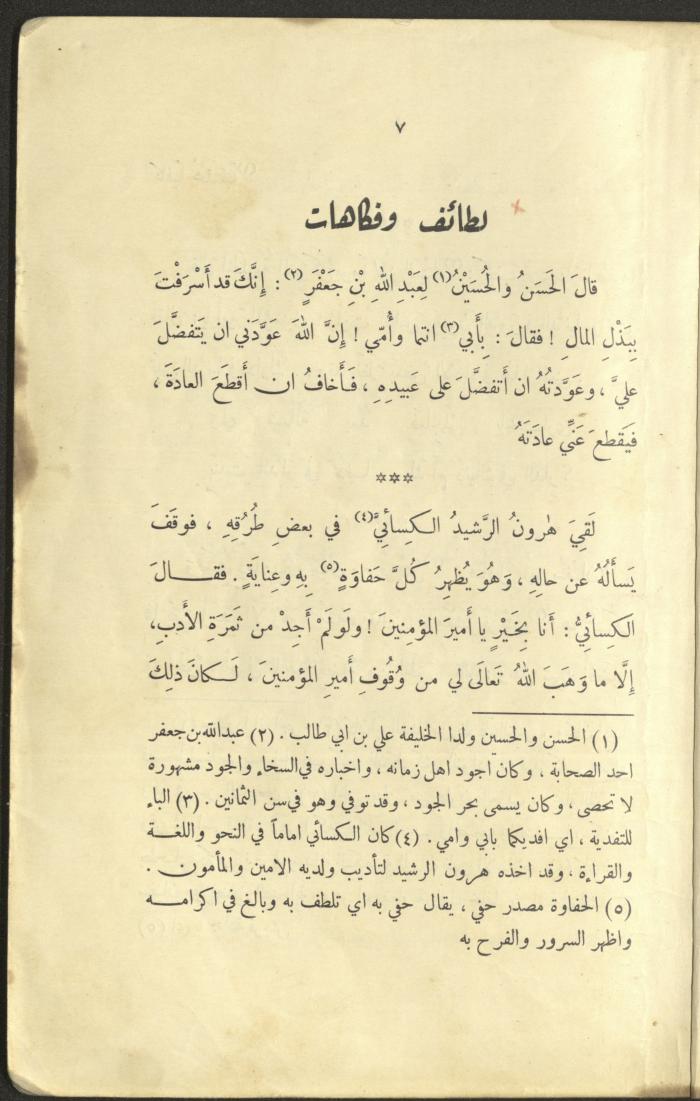 ٧
لطائف وفكاهات
قالَ الحَسَنُ والحُسَيْنُ(١) لِعَبْدِ اللهِ بْنِ جَعْفَرٍ(٢) : إِنَّكَ قد أَسْرَفْتَ
بِبَذْلِ المالِ ! فقالَ : بِأَبي(٣) انتما وأُمّي ! إِنَّ اللهَ عَوَّدَني ان يَتَفضَّلَ
عليَّ ، وعَوَّدتُهُ ان أَتفضَّلَ على عَبيدِهِ ، فَأَخافُ ان أَقطَعَ العادَةَ ،
فيَقطعَ عَنِّي عادَتَهُ
***
لَقِيَ هٰرونُ الرَّشيدُ الكِسائيَّ(٤) في بعضِ طُرُقِهِ ، فوقَفَ
يَسأَلُهُ عن حالِهِ ، وَهُوَ يُظهِرُ كُلَّ حَفاوَةٍ(٥) بِهِ وعِنايَةٍ . فقالَ
الكِسائيُّ : أَنا بِخَيْرٍ يا أَميرَ المؤمِنينَ ! ولَو لَمْ أَجِدْ من ثَمَرَةِ الأَدبِ ،
إِلَّا ما وَهَبَ اللهُ تَعالَى لي من وُقُوفِ أَميرِ المؤمنينَ ، لَكانَ ذلِكَ
(١) الحسن والحسين ولدا الخليفة علي بن ابي طالب . (٢) عبدالله بن جعفر
احد الصحابة ، وكان اجود اهل زمانه ، واخباره في السخاء والجود مشهورة
لا تحصى ، وكان يسمى بحر الجود ، وقد توفي وهو في سن الثمانين . (٣) الباء
للتفدية ، اي افديكما بابي وامي . (٤) كان الكسائي اماماً في النحو واللغة
والقراءة ، وقد اخذه هرون الرشيد لتأديب ولديه الامين والمأمون .
(٥) الحفاوة مصدر حفي ، يقال حفي به اي تلطف به وبالغ في اكرامه
واظهر السرور والفرح به